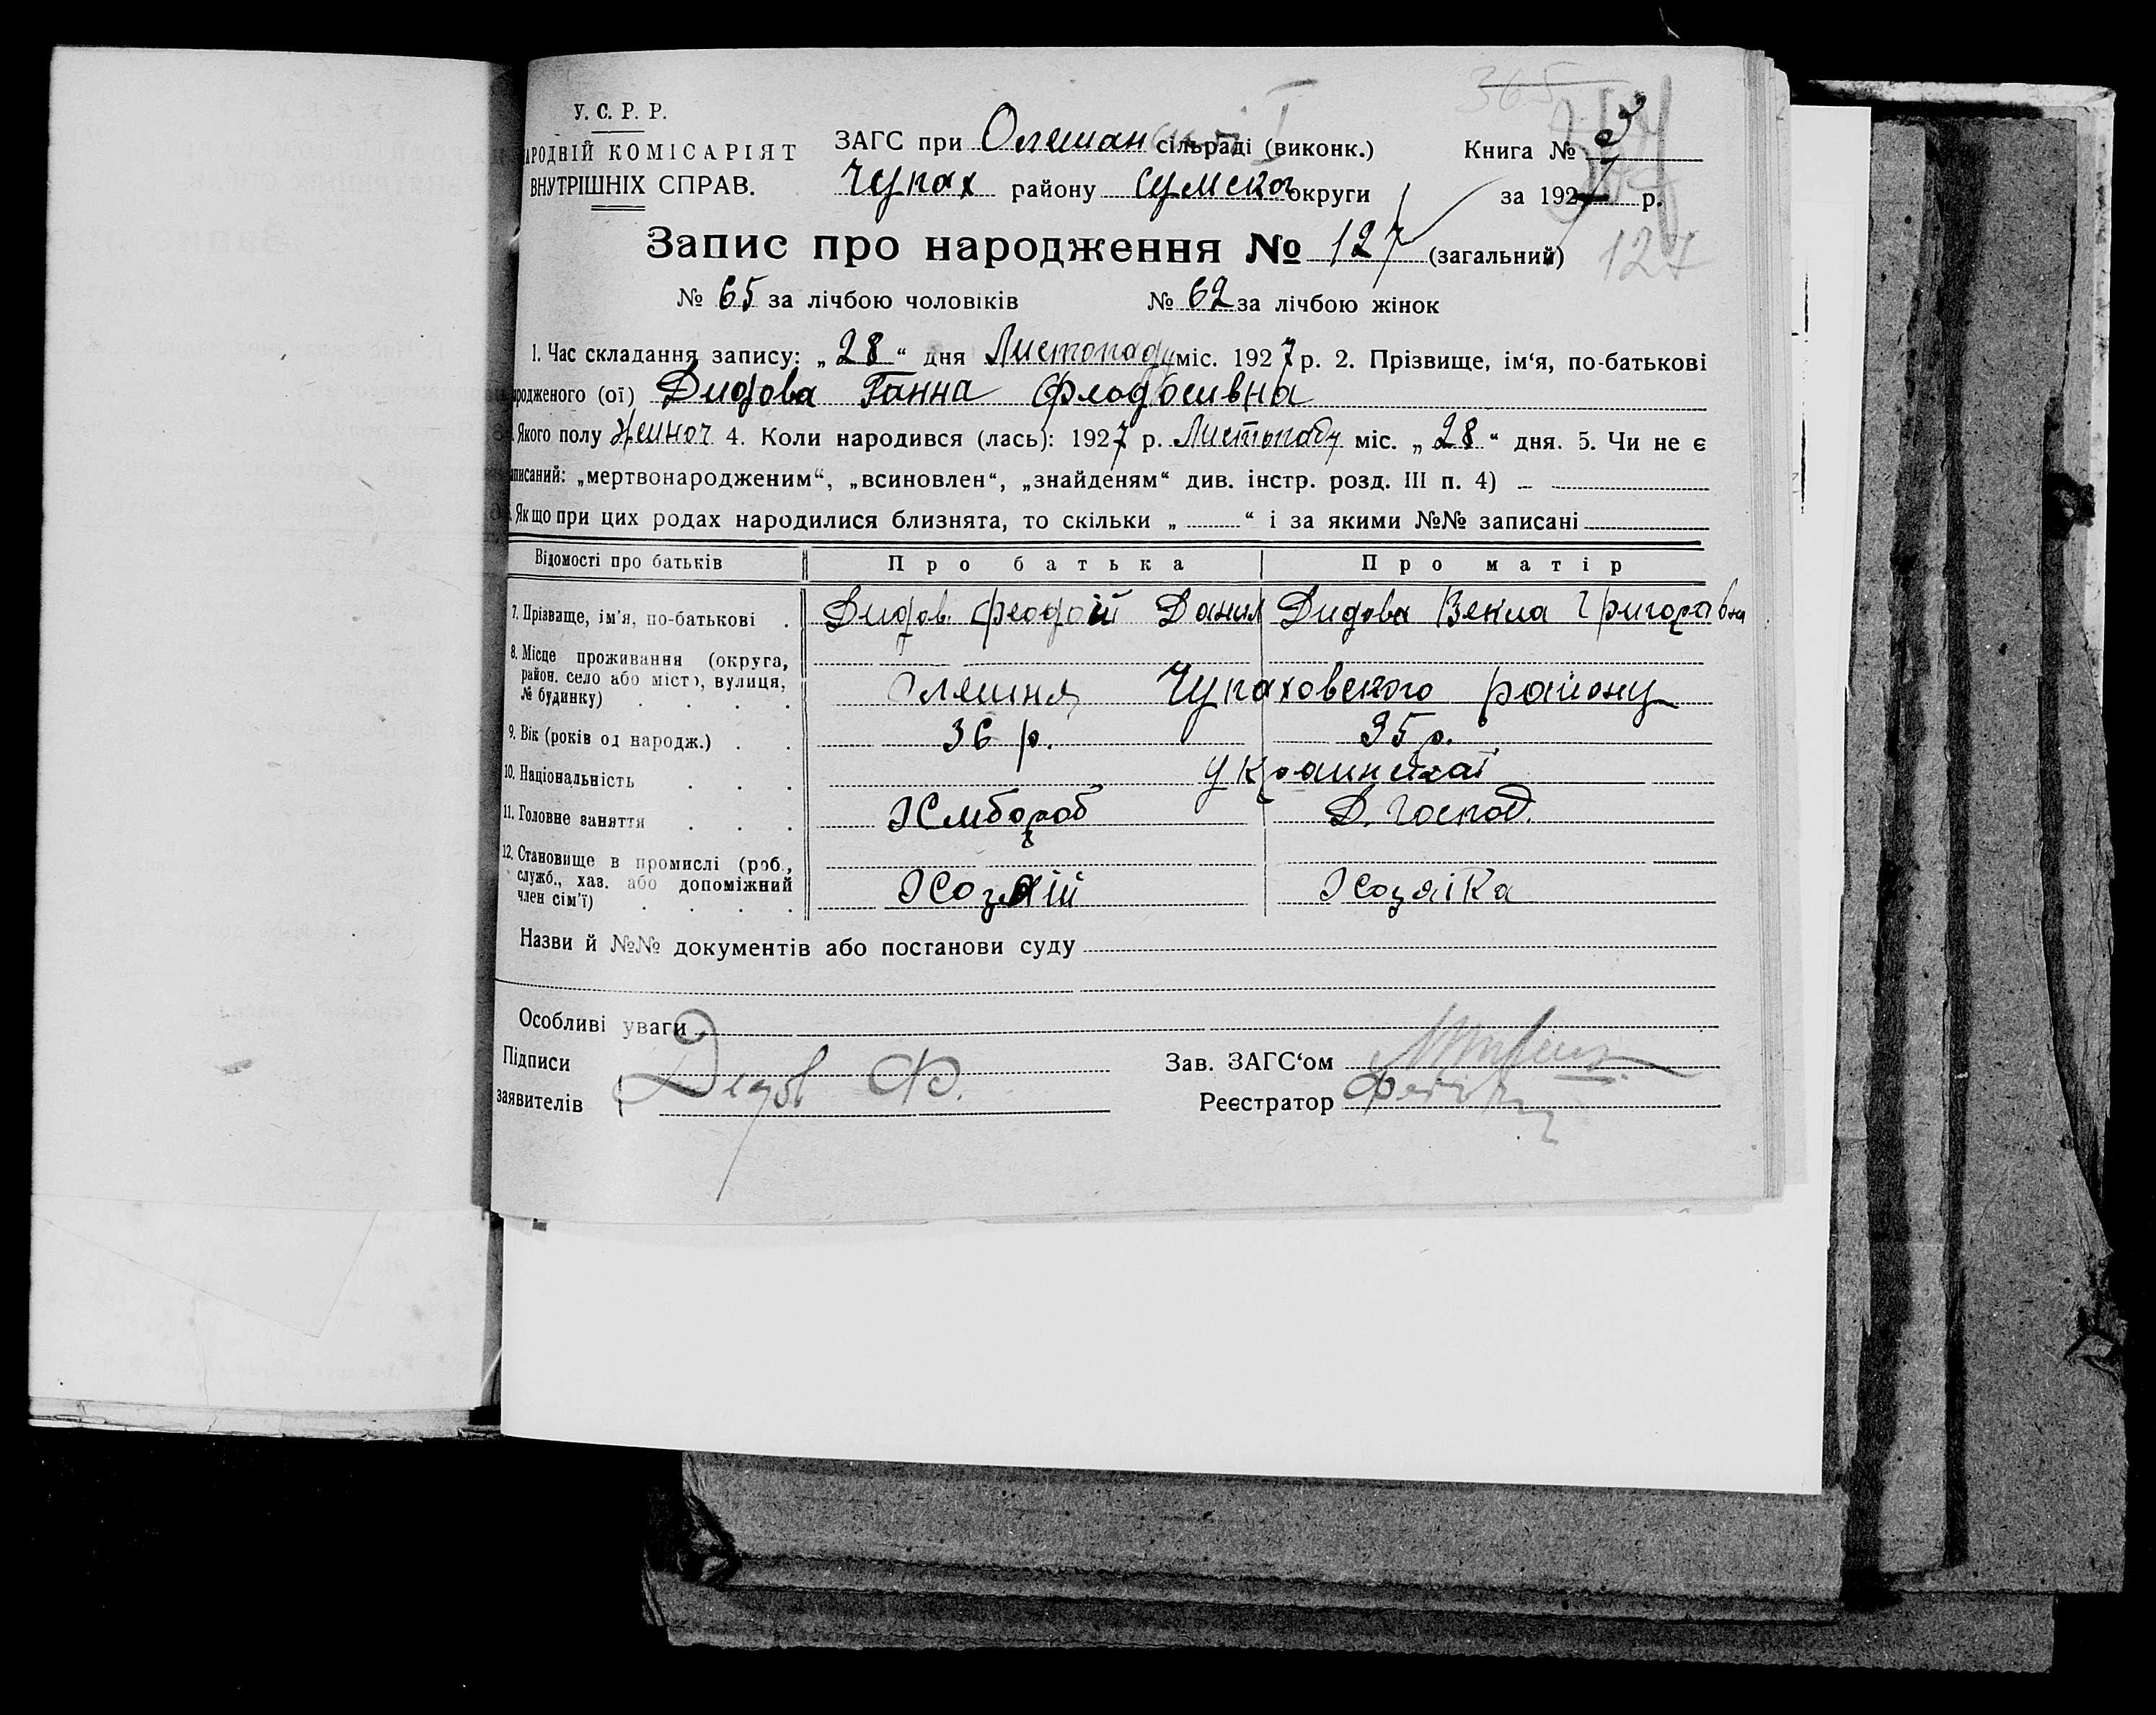 365
У. С. Р. Р.
АРОДНІЙ КОМІСАРІЯТ
ВНУТРІШНІХ СПРАВ.
ЗАГС при Олешан сільраді (виконк.) Книга № 3
Чупах району Сумског округи за 1927 р.
Запис про народження № 127 (загальний) 127
№ 65 за лічбою чоловіків № 62 за лічбою жінок
1. Час складання запису: „ 28 “ дня Листопаду міс. 1927 р. 2. Прізвище, ім‘я, по-батькові
родженого (ої) Дидова Ганна
Якого полу Жиноч 4. Коли народився (лась): 1927 р. Листопаду міс. „ 28 “ дня. 5. Чи не є
аписаний: „мертвонародженим“, „всиновлен“, „знайденям“ див. інстр. розд. III п. 4) –
Якщо при цих родах народилися близнята, то скільки „ “ і за якими №№ записані
Відомості про батьків Про батька Про матір
7. Прізвище, ім'я, по-батькові Дидов Данил Дидова Векла Григоровна
8. Місце проживання (округа,
район, село або місто, вулиця,
№ будинку) Олешня Чупаховского району
9. Вік (років од народж.) 36 р. 35 р.
10. Національність
11. Головне заняття Хлібороб Д. Господ.
12. Становище в промислі (роб.,
служб., хаз. або допоміжний
член сім'ї) Хозяій Хозяіка
Назви й №№ документів або постанови суду
Особливі уваги
Підписи Зав. ЗАГС‘ом
заявителів Дедов Ф. Реєстратор